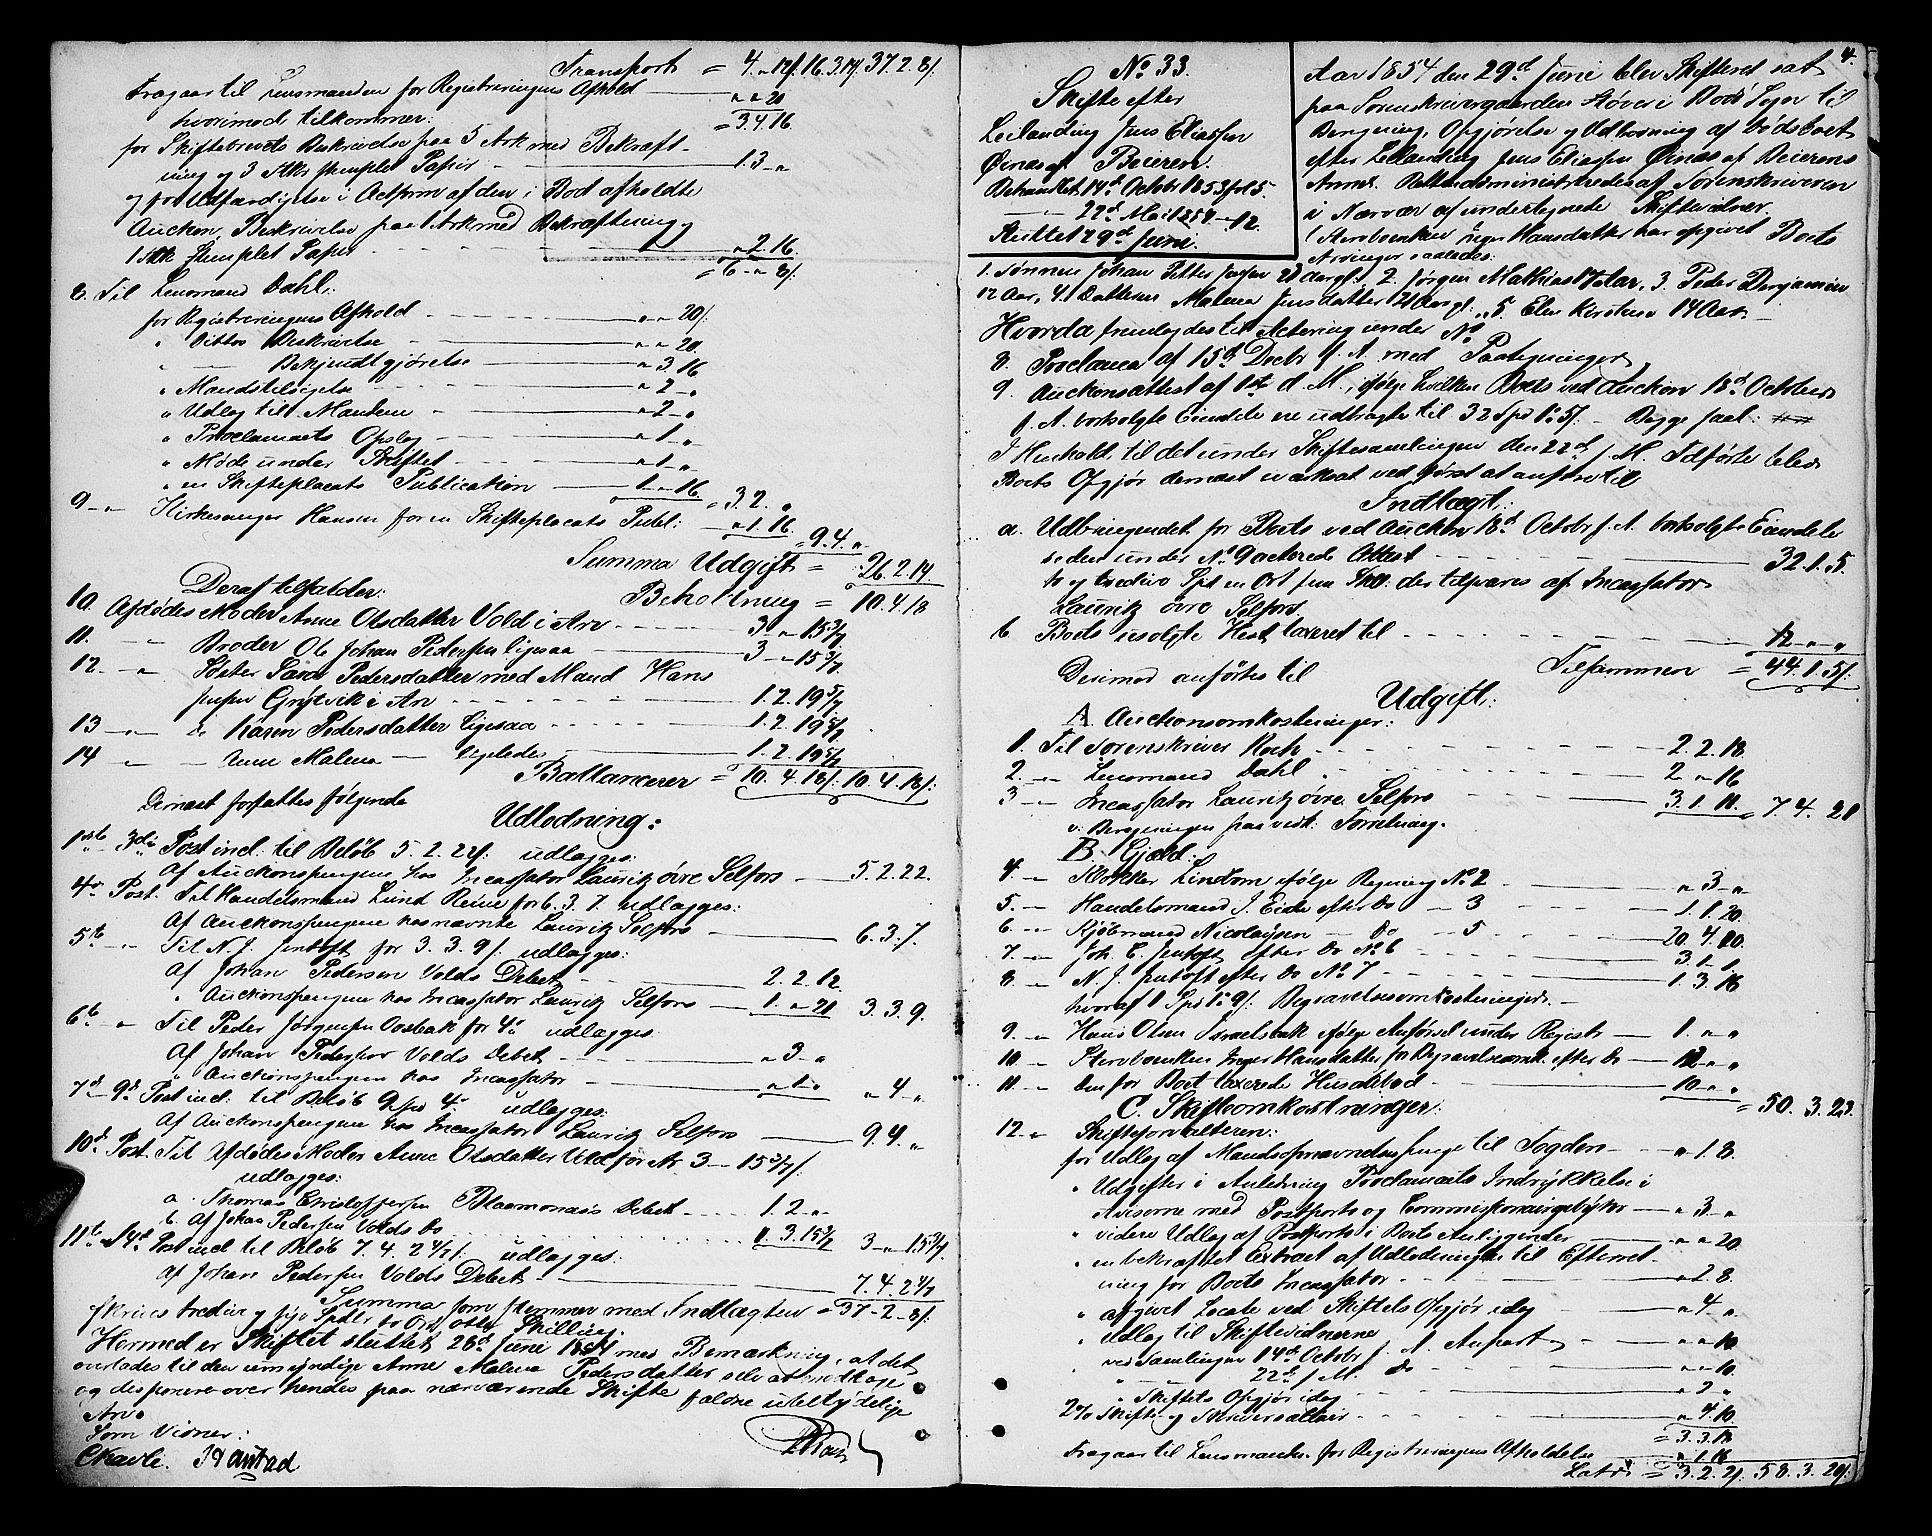 Transport = 4 " 12 ß 16.3.14 ß 37.2.8 ß.
Fragaar til Lensmanden for Registreringens Afhold " " 20
hvorimod tilkommer: = 3.4.16
for Skiftebrevets Beskrivelse paa 5 Ark med Bekræft-
ning og 3 Stkr stemplet Papir 1.3 "
og for Udfærdigelse i Actform af den i Boet afholdte
Auction, Beskrivelse paa 1 Ark med Bekræftning og
1 Stk stemplet Papir " 2.16
= 6 " 8 ß.
8. Til Lensmand Dahl:
for Registreringens Afhold " " 20 ß.
" Dittos Beskrivelse " " 20
" — Bekjendtgjørelse " 3.16
" Mandstilsigelse " 2 "
" Udlæg til 2 Mændene " 2 "
" Proclamaets Opslag " 1 "
" Møde under Skiftet " 1 "
" en Skifteplacats Publication 1 " 16 = 3.2. "
9 " Kirkesanger Hansen for en Skifteplacats Publ: " 1.16
= 9.4. "
Summa Udgift = 26.2.14
Deraf tilfalder: Beholdning = 10.4.18
10. Afdødes Moder Anne Olsdatter Vold i Arv 3 " 15 3/7
11. — Broder Ole Johan Pedersen ligesaa 3 " 15 3/7
12 " Søster Sara Pedersdatter med Mand Hans
Jensen Grøtvik i Arv 1.2.19 5/7
13 " Do Karen Pedersdatter ligesaa 1.2.19 5/7
14 " — Anne Malena — ligeledes 1.2.19 5/7
Ballancerer = 10.4.18 ß. 10.4.18 ß.
Dernæst forfattes følgende
Udlodning:
1ste – 3die Post incl. til Beløb 5.2.22 ß. udlægges:
Af Auctionspengene hos Incassator Lauritz øvre Selfors 5.2.22.
4de Post. Til Handelsmand Lund Reine for 6.3.7. udlægges:
Af Auctionspengene hos nævnte Lauritz Selfors 6.3.7.
5te " Til N. J. Jentoft for 3.3.9 ß. udlægges:
Af Johan Pedersen Volds Debet 2.2.12.
" Auctionspengene hos Incassator Lauritz Selfors 1. " 21 3.3.9.
6te " Til Peder Jørgensen Oosbak for 4 udlægges
Af Johan Pedersen Volds Debet " 3 "
" Auctionspengene hos Incassator " 1 " " 4 "
7de – 9de Post incl. til Beløb 9 Spd 4 udlægges:
Af Auctionspengene hos Incassator Lauritz Selfors 9.4. "
10de Post. Til Afdødes Moder Anne Olsdatter Vold for Arv 3 – 15 3/7 ß.
udlægges:
a. Thomas Christophersen Debet 1.2. "
b. Af Johan Pedersen Volds Do 1.3.15 3/7 3 " 15 3/7.
11te – 14de Post incl til Beløb 7.4.2 4/7 ß. udlægges:
Af Johan Pedersen Volds Debet 7.4.2 4/7
Summa som stemmer med Indtægten = 37–2–8 ß.
skrives tredive og syv Spdlr to Ort otte Skilling.
Hermed er Skiftet sluttet 26de Juni 1854 med Bemærkning, at det
overlades til den umyndige Anne Malena Pedersdatter selv at modtage
og disponere over hendes paa nærværende Skifte faldne ubetydelige
Arv.
Som Vidner:
No 33.
Skifte efter
Leilænding Jens Eliassen
Øinæs af Beieren.
Behandlet 14de Octobr 1853 fol 5.
— 22de Mai 1854 – 12.
Sluttet 29de Juni.
4.
Aar 1854 den 29de Juni blev Skifteret sat
paa Sorenskrivergaarden Støver i Bodø Sogn til
Beregning, Opgjørelse og Udlodning af Dødsboet
efter Leilænding Jens Eliassen Øinæs af Beierens
Annex. Retten administreredes af Sorenskriveren
i Nærvær af undertegnede Skiftevidner.
Sterboenken Inger Hansdatter har opgivet Boets
Arvinger saaledes:
1. Sønnen Johan Petter Jensen 22 Aar gl., 2. Jørgen Mathias 17 Aar, 3. Peder Benjamin
12 Aar, 4. Datteren Malena Jensdatter 21 Aar gl., 5. Elen Kirstine 14 Aar.
Hvorda fremlagdes til Actering under No
8. Proclama af 15de Decbr f. A. med Paategninger
9. Auctionsattest af 1ste d. M., ifølge hvilken Boets ved Auction 18de October
f. A. bortsolgte Eiendele ere udbragte til 32 Spd 1 5 ß. — Begge saal:
I Henhold til det under Skiftesamlingen den 22de f. M. Tilførte blev
Boets Opgjør dernæst iværksat ved først at anføre til
Indtægt:
a. Udbringendet for Boets ved Auction 18de Octobr f. A. bortsolgte Eiendele
seden under No 9 acterede Attest 32.1.5.
to og tredive Spd en Ort fem Skill. der tilsvares af Incassator
Lauritz øvre Selfors
b Boets usolgte Hest taxeret til 12 " "
Tilsammen = 44.1.5 ß.
Derimod anføres til
Udgift:
A. Auctionsomkostninger:
1. Til Sorenskriver Koch 2.2.18.
2. " Lensmand Dahl 2 " 16
3 " Incassator Lauritz øvre Selfors 3.1.11. = 7.4.21
B. Gjæld:
4. " Klokker Lindrom ifølge Regning No 2 " 3 "
5. " Handelsmand J. Eide efter Do — 3 1.1.20.
6. " Kjøbmand Nicolaysen — Do — 5 20.4.20.
7. " Joh. C. Jentoft efter Do No 6 3.1.1.
8 " N. J. Jentoft efter Do No 7 1.3.16
hvoraf 1 Spd 1 9 ß. Begravelsesomkostninger.
9. " Hans Olsen Israelsbak ifølge Anførsel under Registr 1. " "
10 " Sterboenken Inger Hansdatter for Begravelsesomk. efter Do 12 " "
11. " den for Boet taxerede Huusleebod 10 " "
= 50.3.23.
C. Skifteomkostninger:
12 " Skifteforvalteren:
for Udlæg af Mandsopnævnelsespenge til Fogden " 1.8.
" Udgifter i Anledning Proclamaets Indrykkelse i
Aviserne med Postporto og Commissionairgebyhr " 3 "
" videre Udlæg af Postporto i Boets Anliggender " " 20
" en bekræftet Extract af Udlodningen til Efterret-
ning for Boets Incassator " 2.8.
" afgivet Locale ved Skiftets Opgjør idag " 4 "
" Udlæg til Skiftevidnerne
ved Samlingen 14de Octobr f. A. Anpart " " 10
" — 22de f. M. Do " " 10.
" Skiftets Opgjør idag " 2 "
2% Skifte og Skriversallair " 4.10.
= 3.3.18
Fragaar til Lensmanden for Registreringens Afholdelse " 1.16
Latus = 3.2.2 ß. 58.3.20 ß.